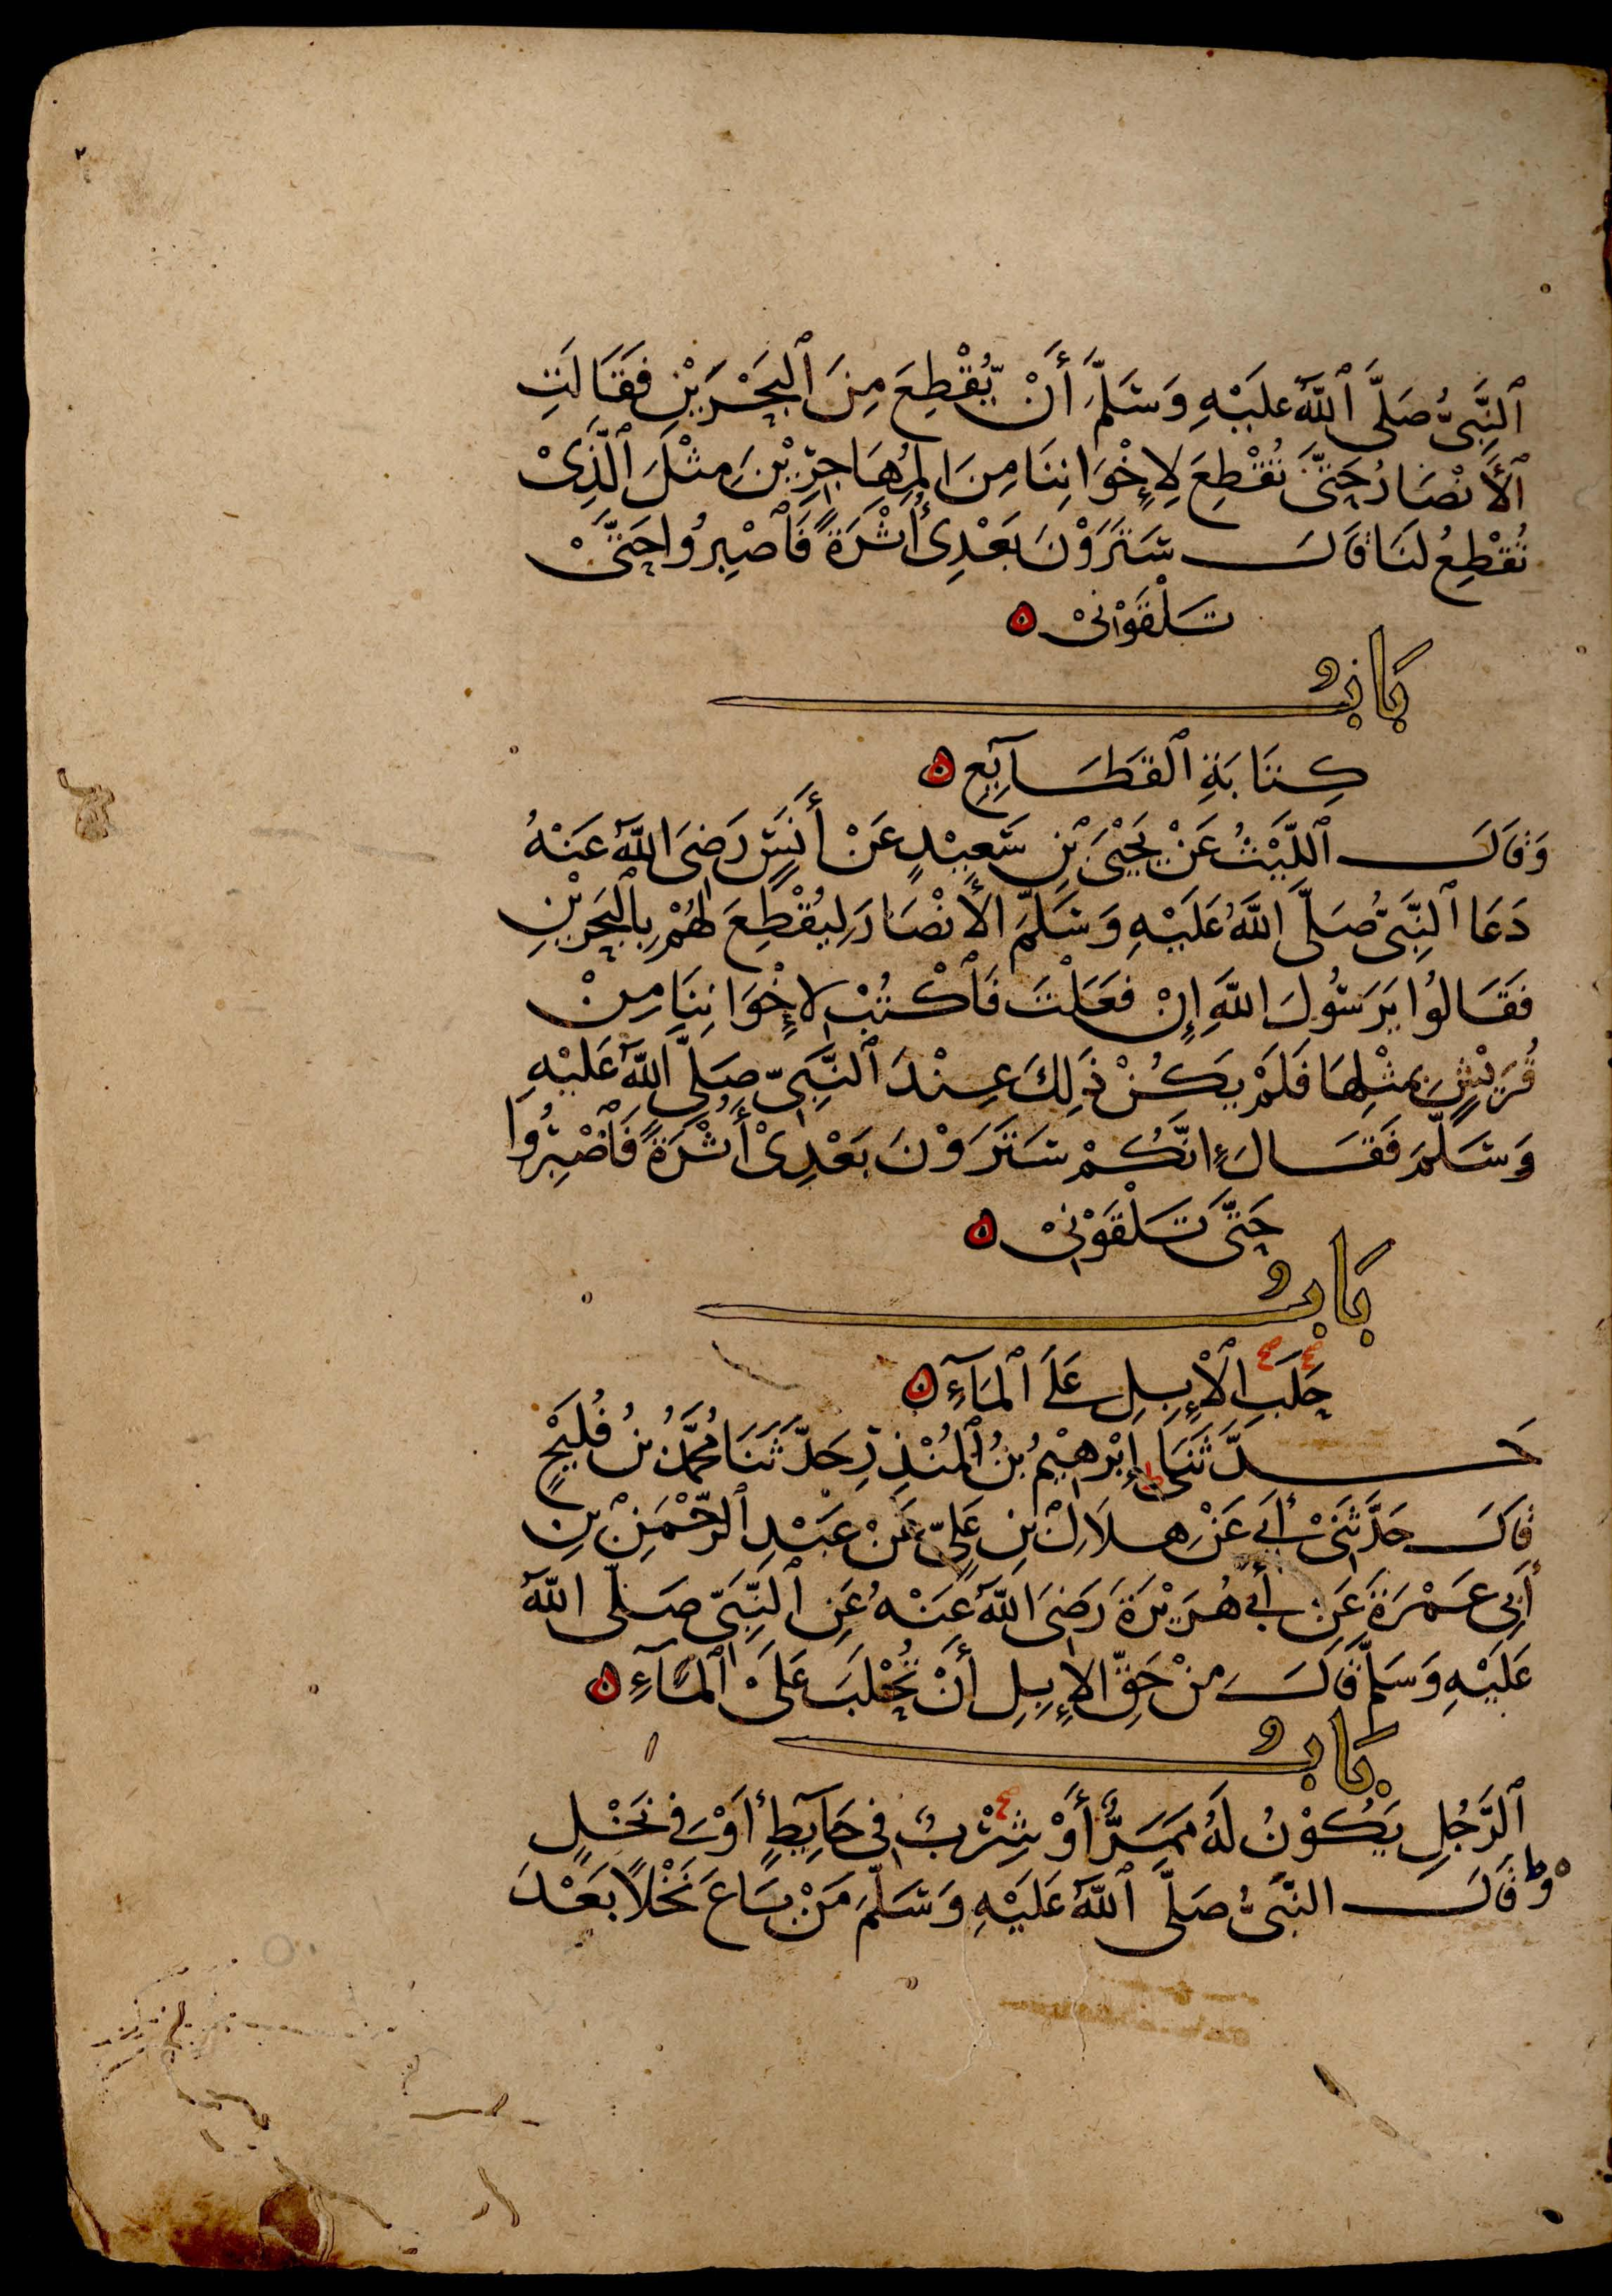 ٱلنَّبِىُّ صَلَّى ٱللَّهُ عَلَيْهِ وَسَلَّمَ أَنْ يُّقْطِعَ مِنَ ٱلْبَحْرَيْنِ فَقَالَتِ
ٱلْأَنْصَارُ حَتَّى تُقْطِعَ لِإِخْوَانِنَا مِنَ الْمُهَاجِرِيْنَ مِثْلَ ٱلَّذِىْ
تُقْطِعُ لَنَا قَالَ سَتَرَوْنَ بَعْدِىْ أُثْرَةً فَٱصْبِرُوا حَتَّىْ
تَلْقَوْنِىْ ه
بَابُ
كِتَابَةِ ٱلْقَطَآيِعِ ه
وَقَالَ ٱللَّيْثُ عَنْ يَحْيَى بْنِ سَعِيْدٍ عَنْ أَنَسٍ رَضِىَ اللَّهُ عَنْهُ
دَعَا ٱلنَّبِىُّ صَلَّى اللَّهُ عَلَيْهِ وَسَلَّمَ الْأَنْصَارَ لِيُقْطِعَ لَهُمْ بِالْبَحْرَيْنِ
فَقَالُوا يَرَسُولَ اللَّهِ إِنْ فَعَلْتَ فَٱكْتُبْ لِإِخْوَانِنَا مِنْ
قُرَيْشٍ بِمِثْلِهَا فَلَمْ يَكُنْ ذَلِكَ عِنْدَ ٱلنَّبِىِّ صَلَّى اللَّهُ عَلَيْهِ
وَسَلَّمَ فَقَالَ إِنَّكُمْ سَتَرَوْنَ بَعْدِىْ أُثْرَةً فَٱصْبِرُوا
حَتَّى تَلْقَوْنِىْ ه
بَابُ
حَلَبِ الْإِبِلِ عَلَى ٱلْمَآءِ ه
حَدَّثَنَا إِبْرٰهِيْمُ بْنُ ٱلْمُنْذِرِ حَدَّثَنَا مُحَمَّدُ بْنُ فُلَيْحٍ
قَالَ حَدَّثَنِىْ أَبِى عَنْ هِلَالِ بْنِ عَلِىٍّ عَنْ عَبْدِ ٱلرَّحْمَنِ بْنِ
أَبِى عَمْرَةَ عَنْ أَبِى هُرَيْرَةَ رَضِىَ اللَّهُ عَنْهُ عَنِ ٱلنَّبِىِّ صَلَّى اللَّهُ
عَلَيْهِ وَسَلَّمَ قَالَ مِنْ حَقِّ الْإِبِلِ أَنْ تُحْلَبَ عَلَىْ ٱلْمَآءِ ه
بَابُ
ٱلرَّجُلِ يَكُوْنُ لَهُ مَمَرٌّ أَوْ شِرْبٌ فِى حَآيِطٍ أَوْ فِى نَخْلٍ
وَقَالَ النَّبِىُّ صَلَّى ٱللَّهُ عَلَيْهِ وَسَلَّمَ مَنْ بَاعَ نَخْلًا بَعْدَ